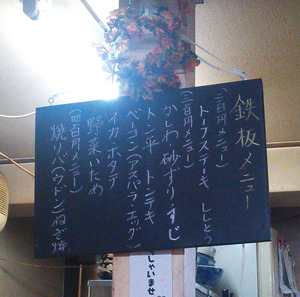 鉄板メニュー
(二百円メニュー)
トーフステーキ ししとう
(三百円メニュー)
かしわ 砂ずり すじ
トン平 トンテキ
ベーコン(アスパラ・エッグ)
イカ ホタテ
野菜いため
(四百円メニュー)
焼ソバ(ウドン)ねぎ焼
っしゃいませ